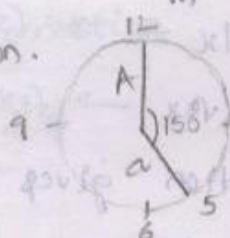 on.
12
A
9
150°
a
5
6